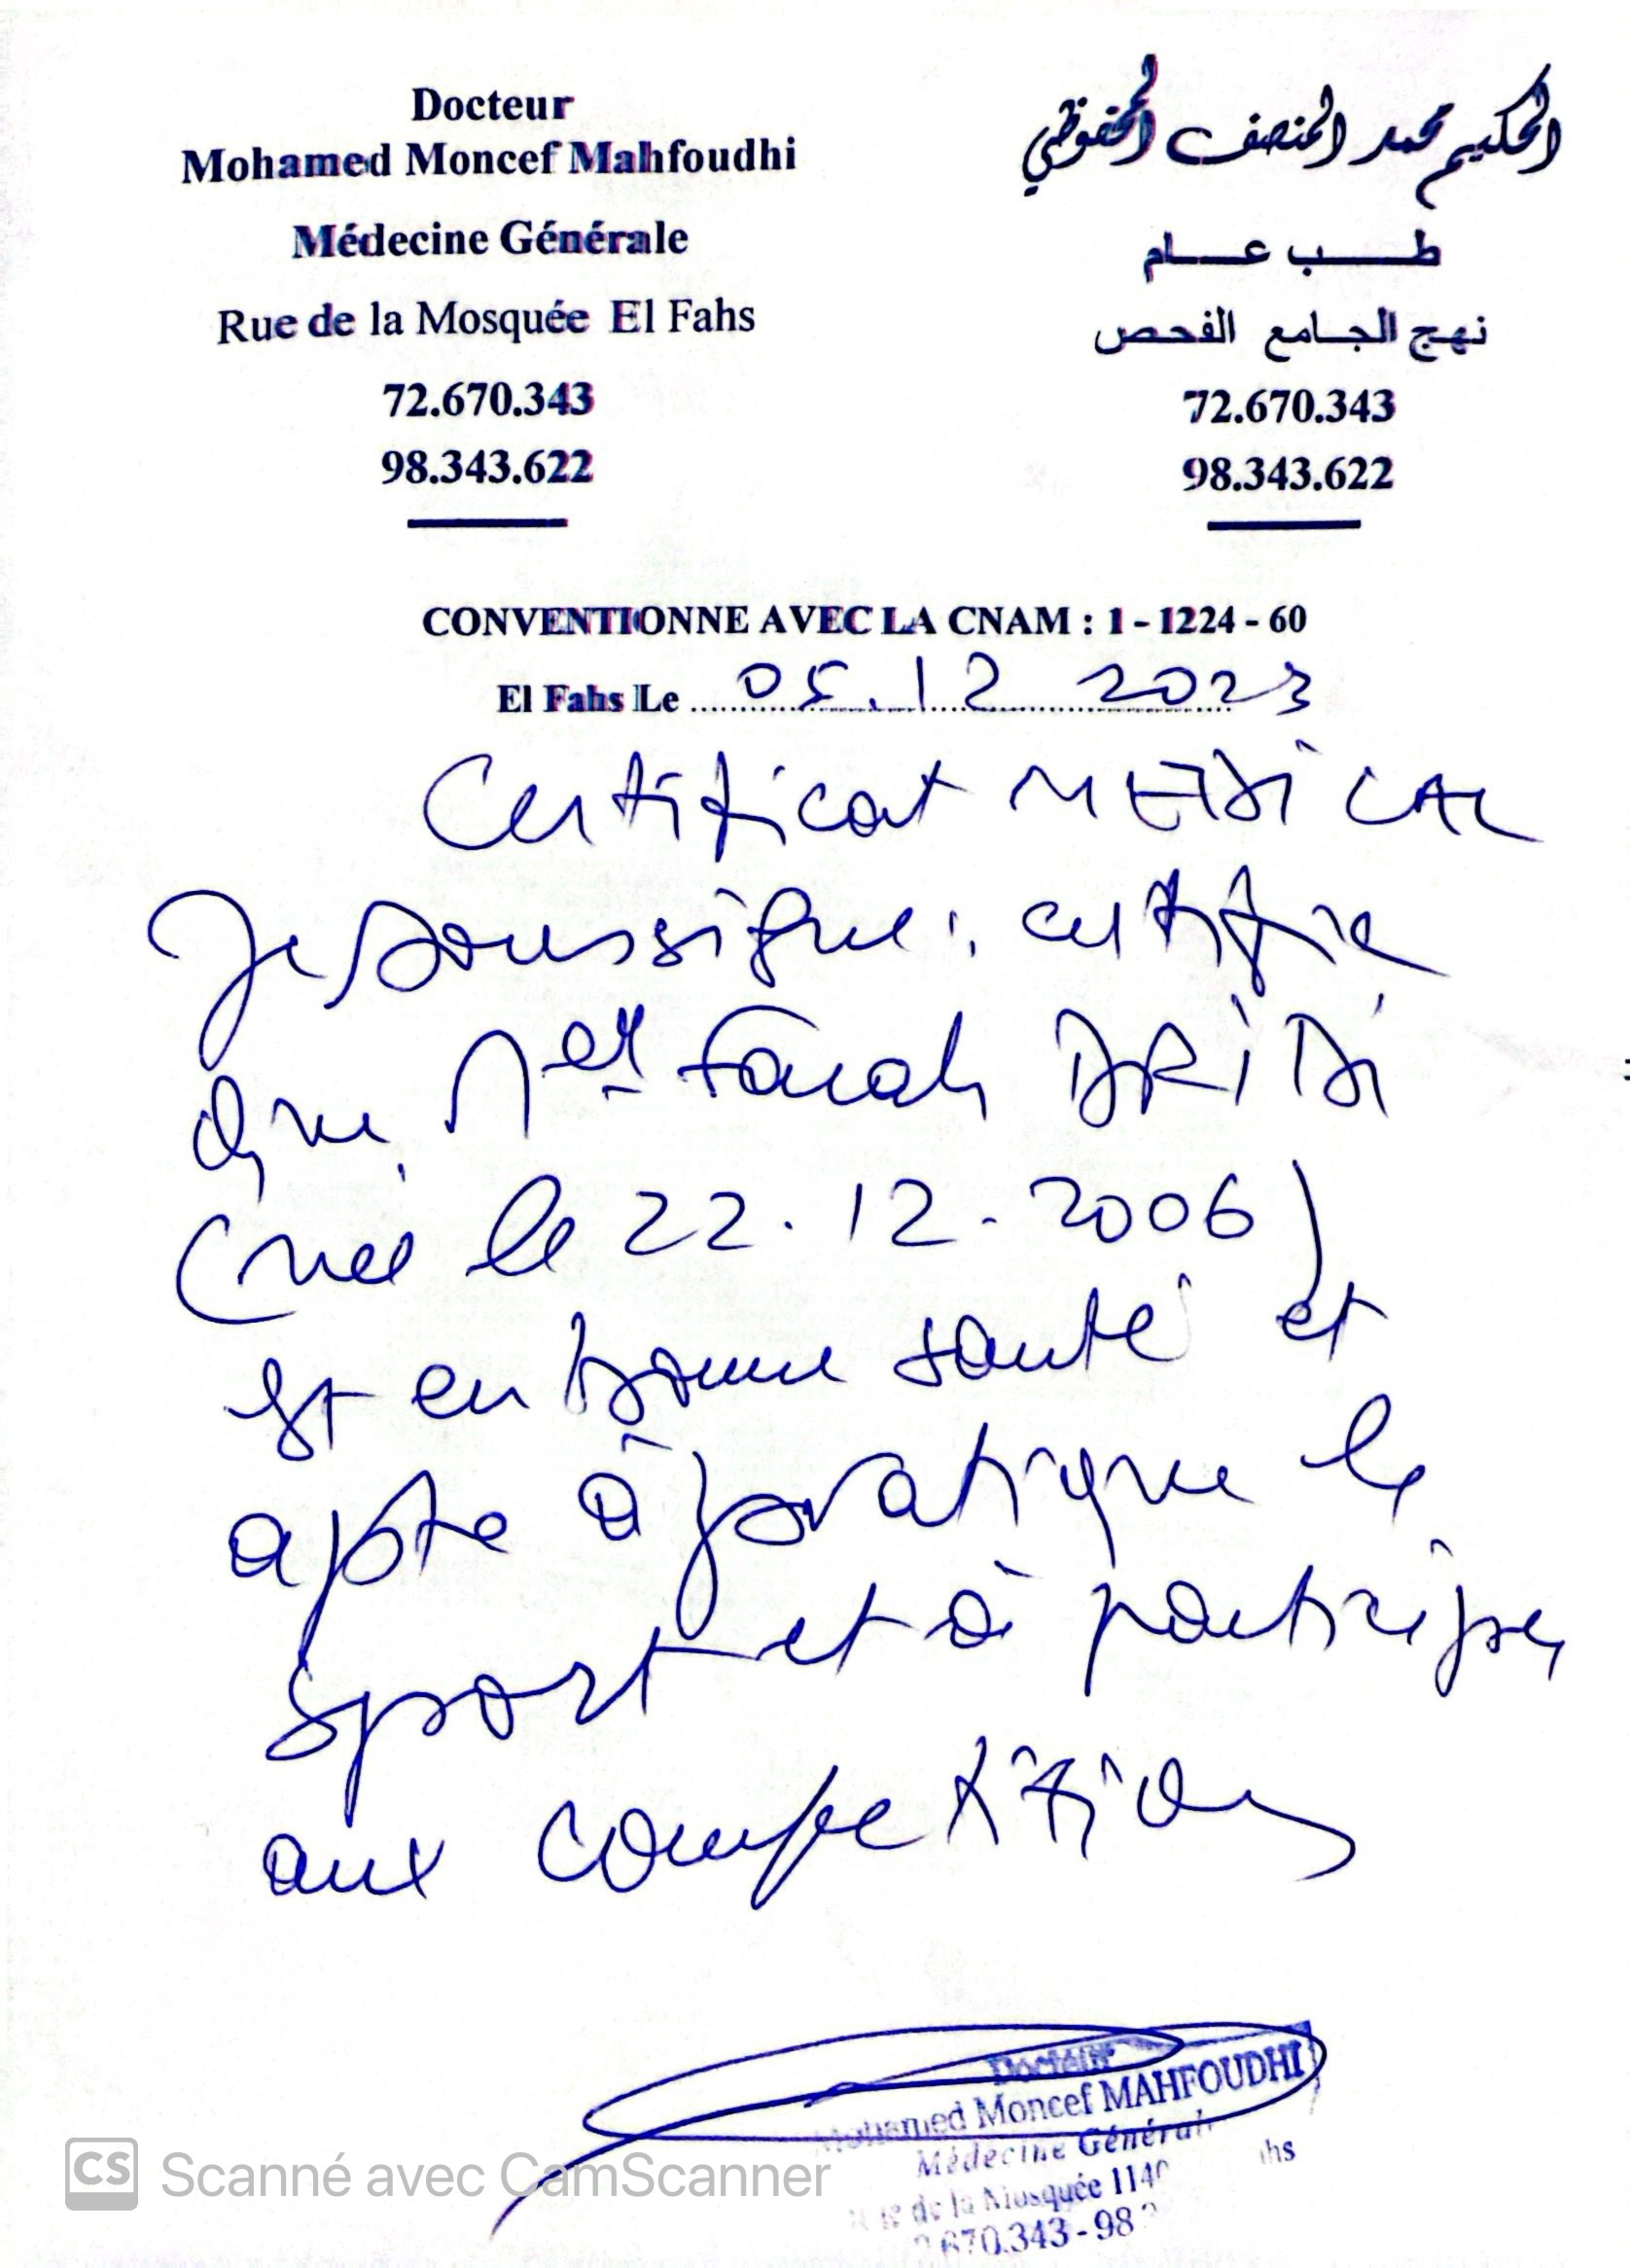 Docteur
Mohamed Moncef Mahfoudhi
Médecine Générale
Rue de la Mosquée El Fahs
72.670.343
98.343.622
الحكيم محمد المنصف المحفوظي
طب عام
نهج الجامع الفحص
72.670.343
98.343.622
CONVENTIONNE AVEC LA CNAM : 1 - 1224 - 60
El Fahs Le 05.12 2023
Certificat MEDICAL
Je soussigné, certifie
que Melle Farah DRIDI
(née le 22.12.2006)
est en bonne santé et
apte à pratiquer le
sport et à participer
aux compétitions
Docteur
Mohamed Moncef MAHFOUDHI
Médecine Général
de la Mosquée 114
670.343 - 98
CS Scanné avec CamScanner